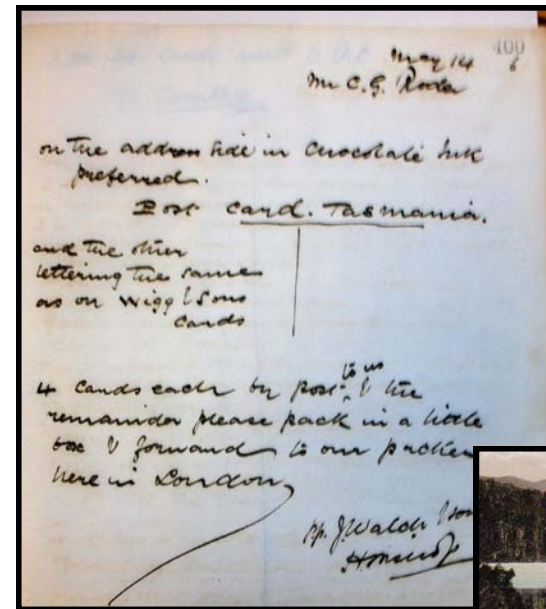 400
May 14
6
Mr C. G. Roder
on the address side in Chocolate Ink
preferred.
Post Card. Tasmania.
and the other
lettering the same
as on Wigg & Sons
Cards
to us
4 Cards each by post & the
remainder please pack in a little
box & forward to our packer
here in London
pp. J. Walch & Sons